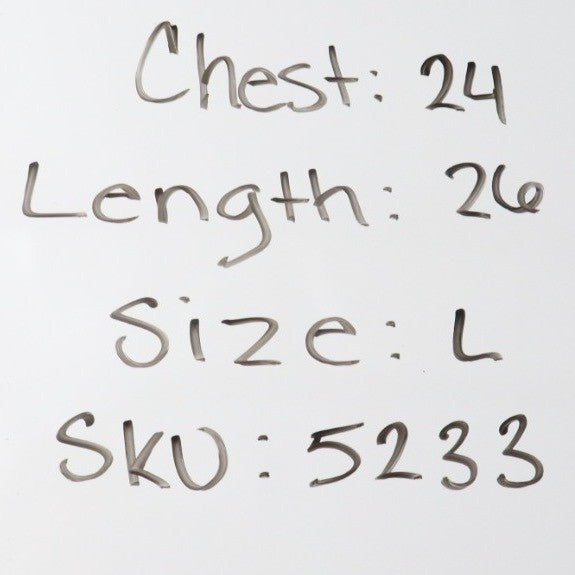 Chest: 24
Length: 26
Size: L
SKU: 5233